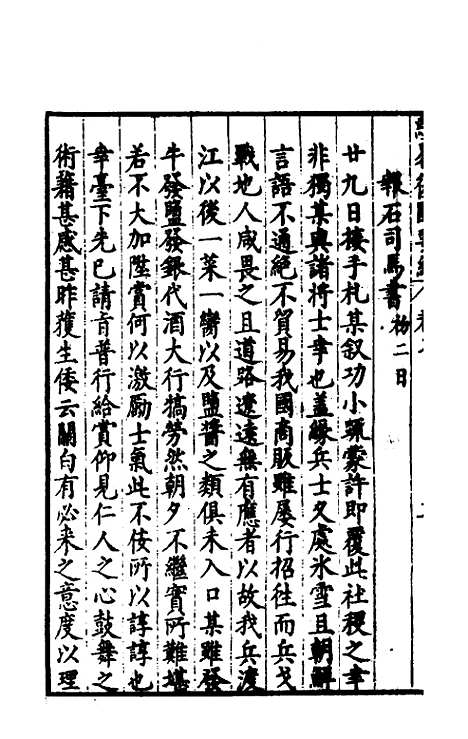 報石司馬書 初二日
廿九日接手札某叙功小疏蒙許即覆此社稷之幸
非獨某與諸將士幸也蓋緣兵士久處氷雪且朝鮮
言語不通絕不貿易我國商販雖屡行招徃而兵戈
戰地人咸畏之且道路遼遠無有應者以故我兵渡
江以後一菜一臠以及鹽醬之類俱未入口某雖發
牛發鹽發銀代酒大行犒勞然朝夕不繼實所難堪
若不大加陞賞何以激勵士氣此不佞所以諄諄也
幸臺下先已請旨普行給賞仰見仁人之心鼓舞之
術藉甚感甚昨獲生倭云關白有必來之意度以理